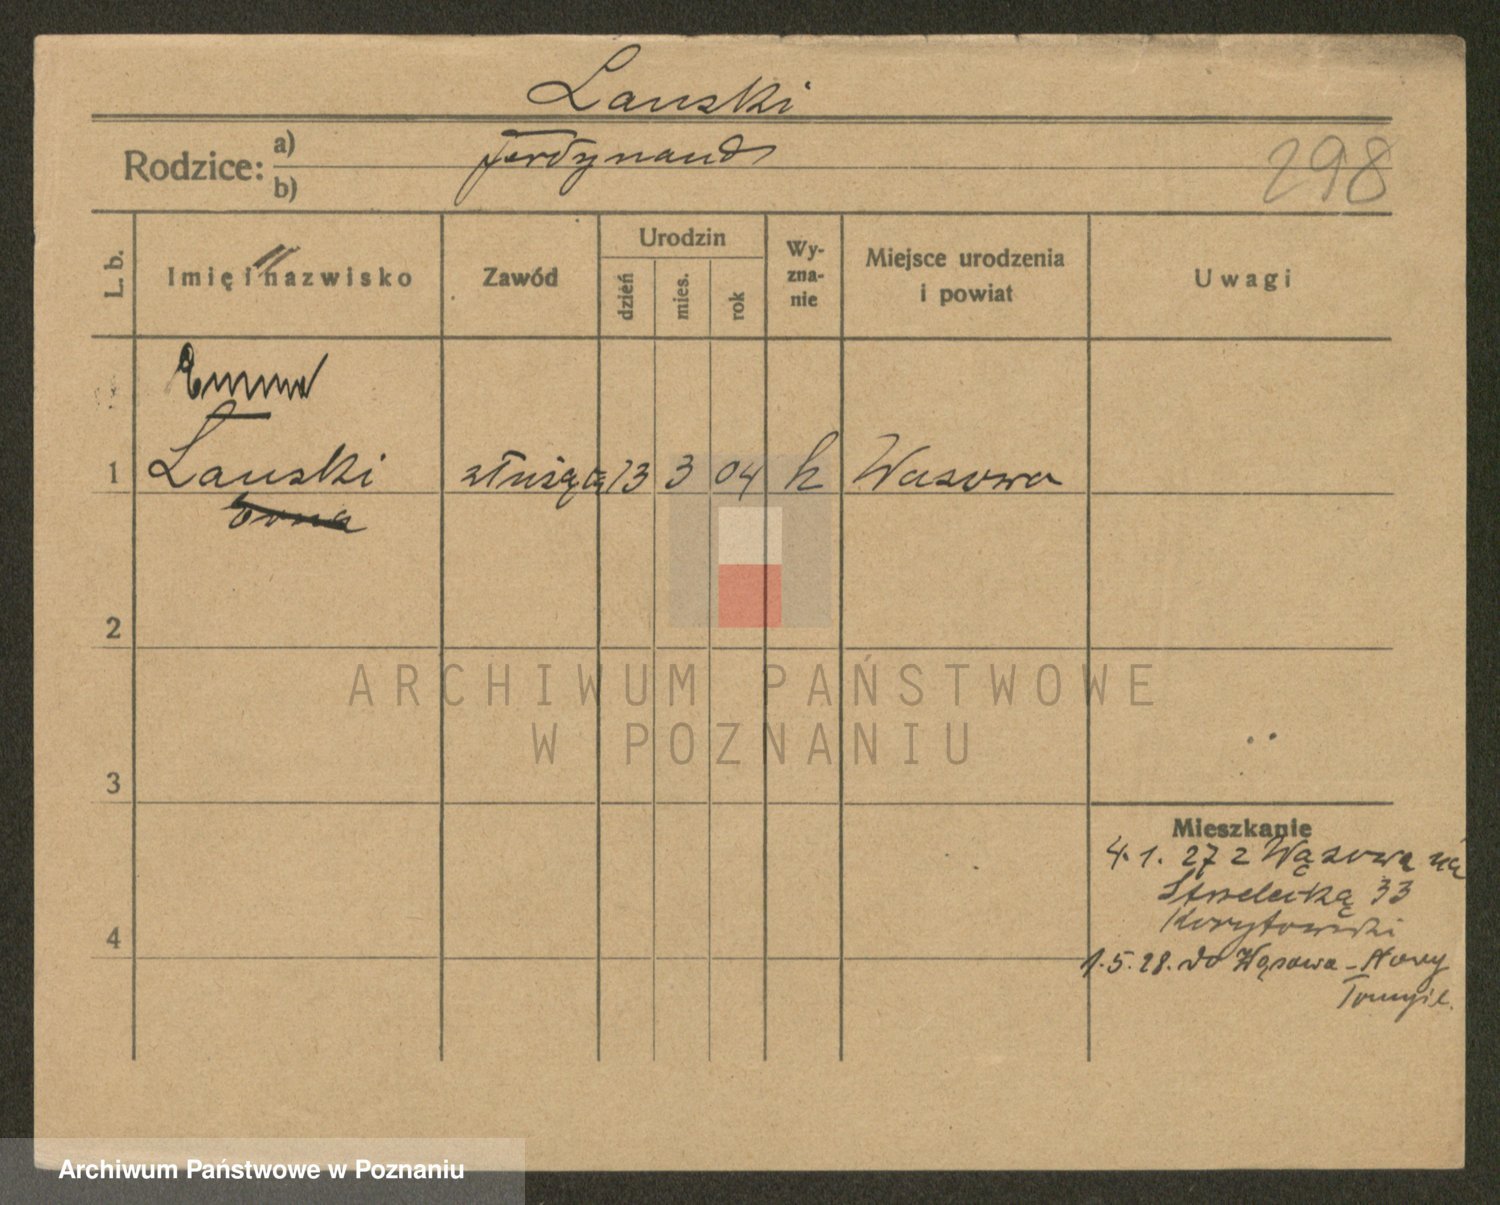 Lanski
Rodzice: a) Ferdynand
b)
298
L. b. Imię i nazwisko Zawód Urodzin dzień mies. rok Wy-zna-nie Miejsce urodzenia i powiat Uwagi
Emma
1 Lanski służąca 13 3 04 k Wasowa
Erna
2
3
4
Mieszkanie
4.1.27 z Wąsowa na
Strzelecką 33
Korytowski
1.5.28. do Wąsowa - Nowy
Tomyśl.
ARCHIWUM PAŃSTWOWE
W POZNANIU
Archiwum Państwowe w Poznaniu